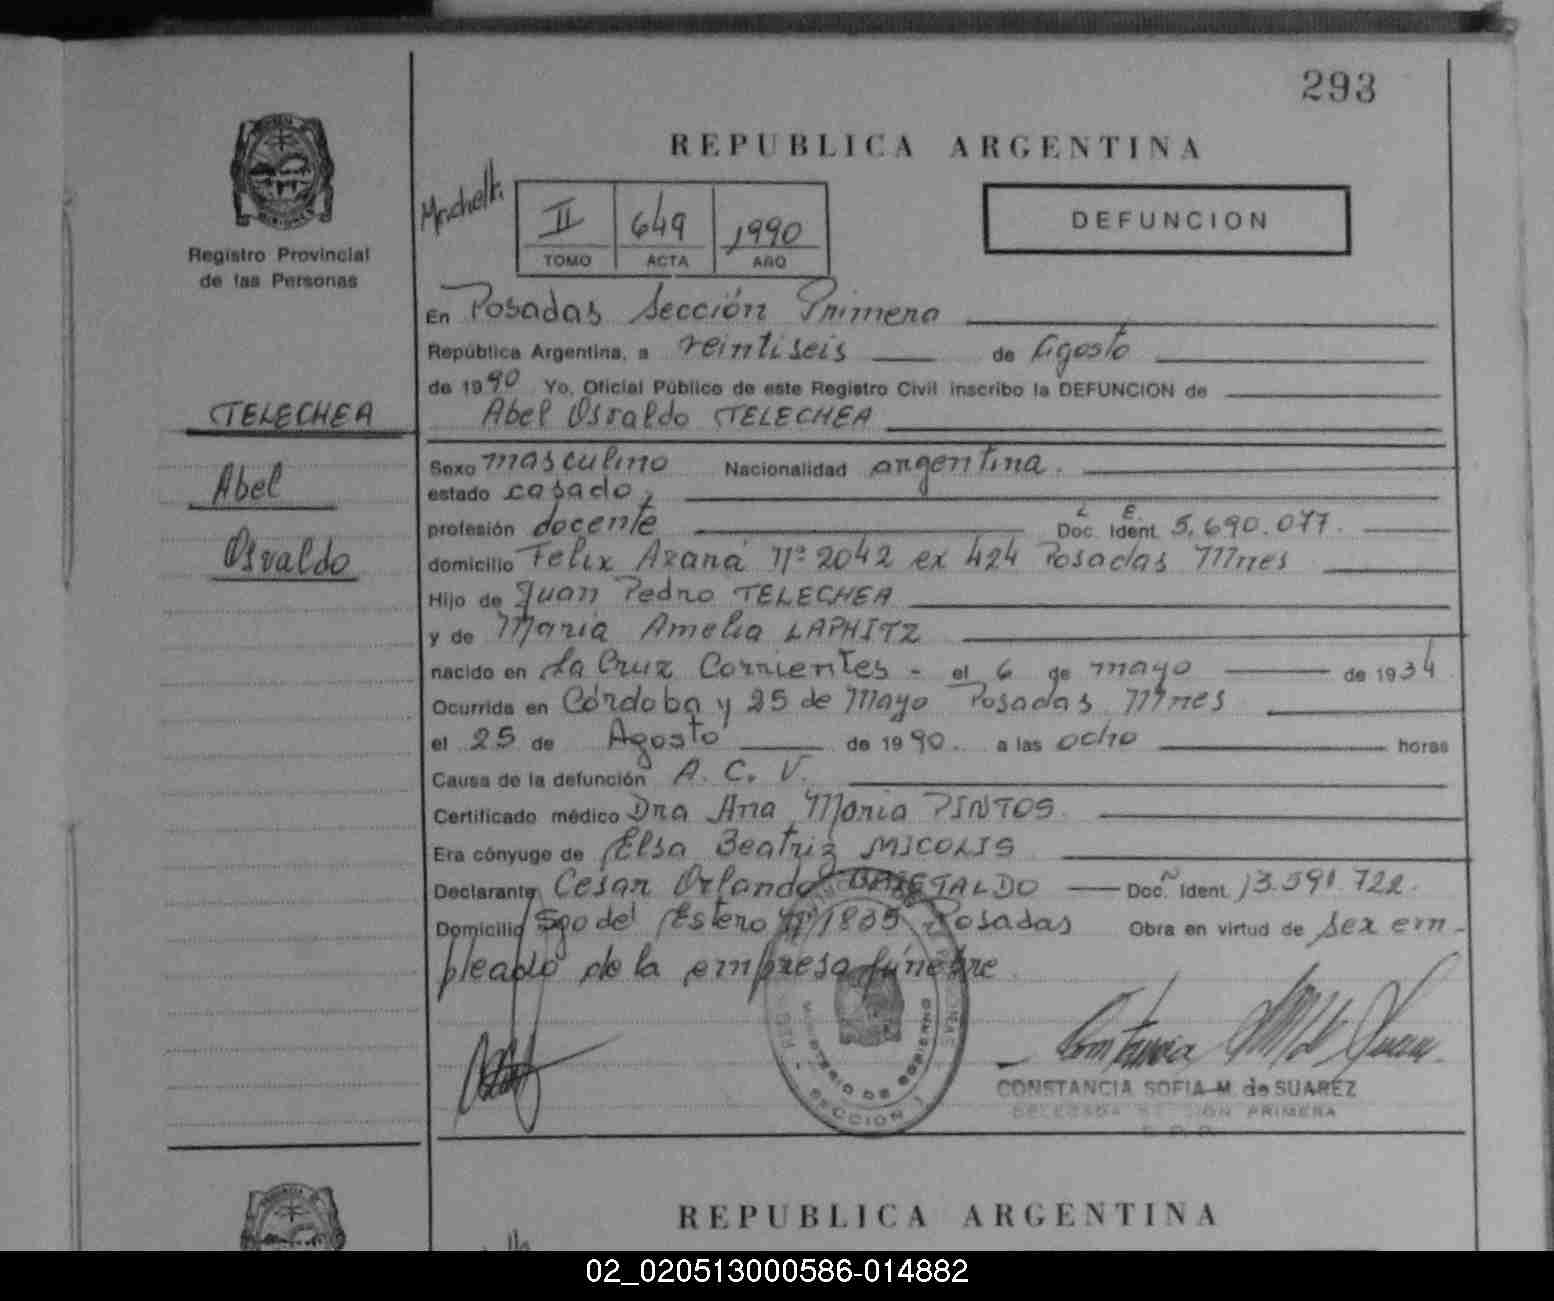 293
REPUBLICA ARGENTINA
Registro Provincial
de las Personas
II 649 1990
TOMO ACTA AÑO
DEFUNCION
En Posadas Sección Primera
República Argentina, a veintiseis de Agosto
de 1990 Yo, Oficial Público de este Registro Civil inscribo la DEFUNCION de
Abel Osvaldo TELECHEA
TELECHEA
Abel
Osvaldo
Sexo masculino Nacionalidad argentina.
estado casado,
profesión docente L. E. Doc. Ident. 5.690.077.
domicilio Felix Azara Nº 2042 ex 424 Posadas Mnes
Hijo de Juan Pedro TELECHEA
y de Maria Amelia LAPHITZ
nacido en La Cruz Corrientes - el 6 de mayo de 1934
Ocurrida en Córdoba y 25 de Mayo Posadas Mnes
el 25 de Agosto de 1990. a las ocho horas
Causa de la defunción A. C. V.
Certificado médico Dra Ana Maria PINTOS.
Era cónyuge de Elsa Beatriz MICOLIS
Declarante César Orlando Doc. Ident. 13.591.722.
Domicilio Sgo del Estero Nº 1835 Posadas Obra en virtud de ser em-
pleado de la empresa fúnebre
MINISTERIO DE GOBIERNO
SECCION 1
CONSTANCIA SOFIA M. de SUAREZ
DELEGADA SECCION PRIMERA
REPUBLICA ARGENTINA
02_020513000586-014882